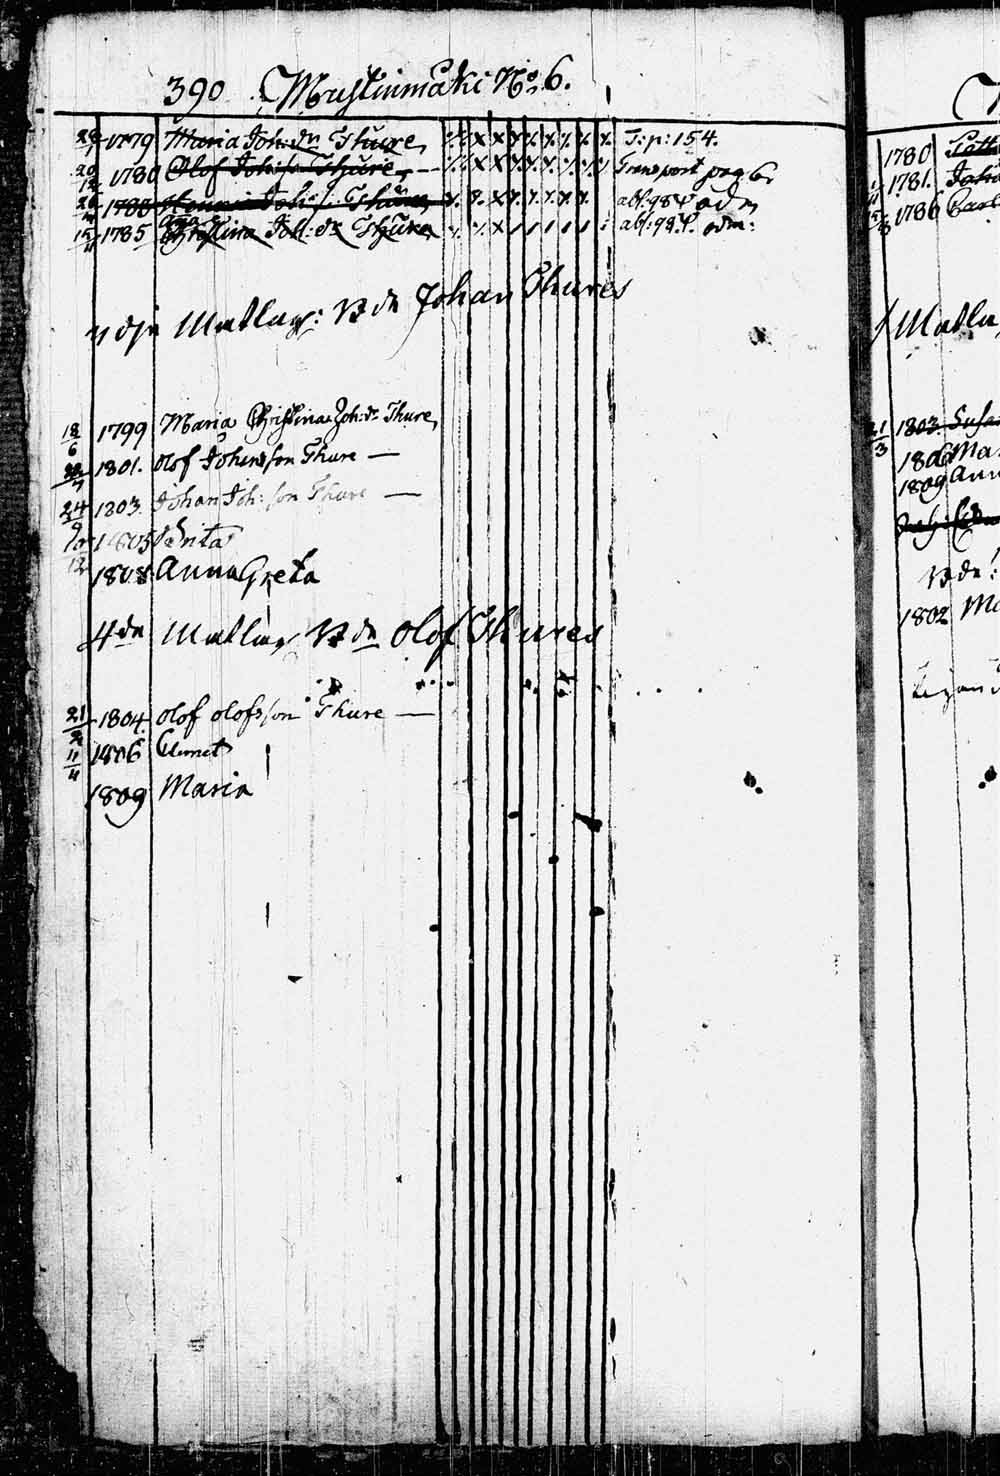 390 Mustinmäki No 6.
28 1779 Maria Joh:dr Thure T:p: 154.
20/12 1780 Olof Joh:son Thure Transport pag 6
26 1783 Joh: s. Thure abs: 984 odm
15/11 1785 Christina Joh:dr Thure abs: 984. odm:
dje Matlag: Vde Johan Thures
18/6 1799 Maria Christina Joh:dr Thure
22/7 1801. Olof Johansson Thure —
24/9 1803. Johan Joh:son Thure —
10/12 1805 Brita
1808 Anna Greta
4de Matlag Vde Olof Thures
21/2 1804. Olof Olofsson Thure —
11/4 1806 Clemet
1809 Maria
1780
1781.
1786 Carl
Matla
21/3 1803
1806 Ma
1809 Ann
Vde:
1802 Ma